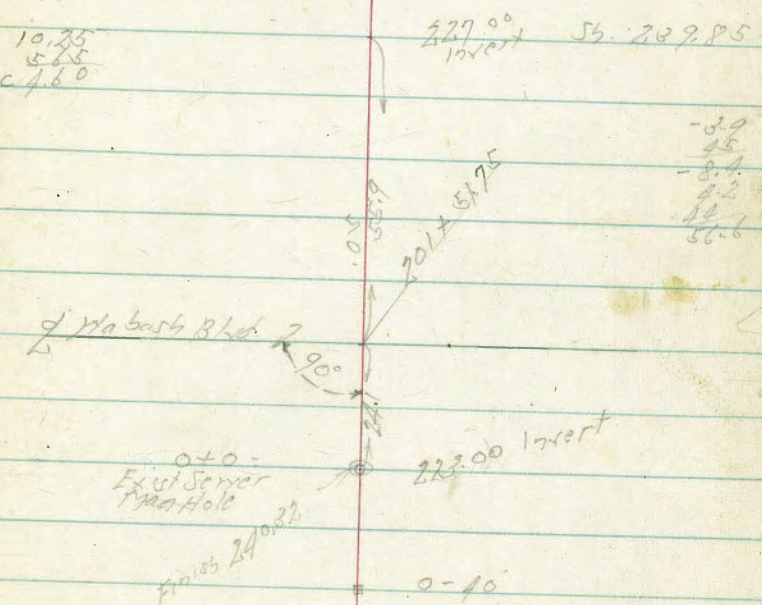 10.25
5.65
C 4.60
227.00
Invert
Sh. 239.85
-3.9
4.5
-8.4
4.2
44
56.6
.05
55.9
701+51.75
℄ Wabash Blvd.
90°
24.1
0+0-
Exist Sewer
Man Hole
223.00 Invert
Finish 240.32
0-40